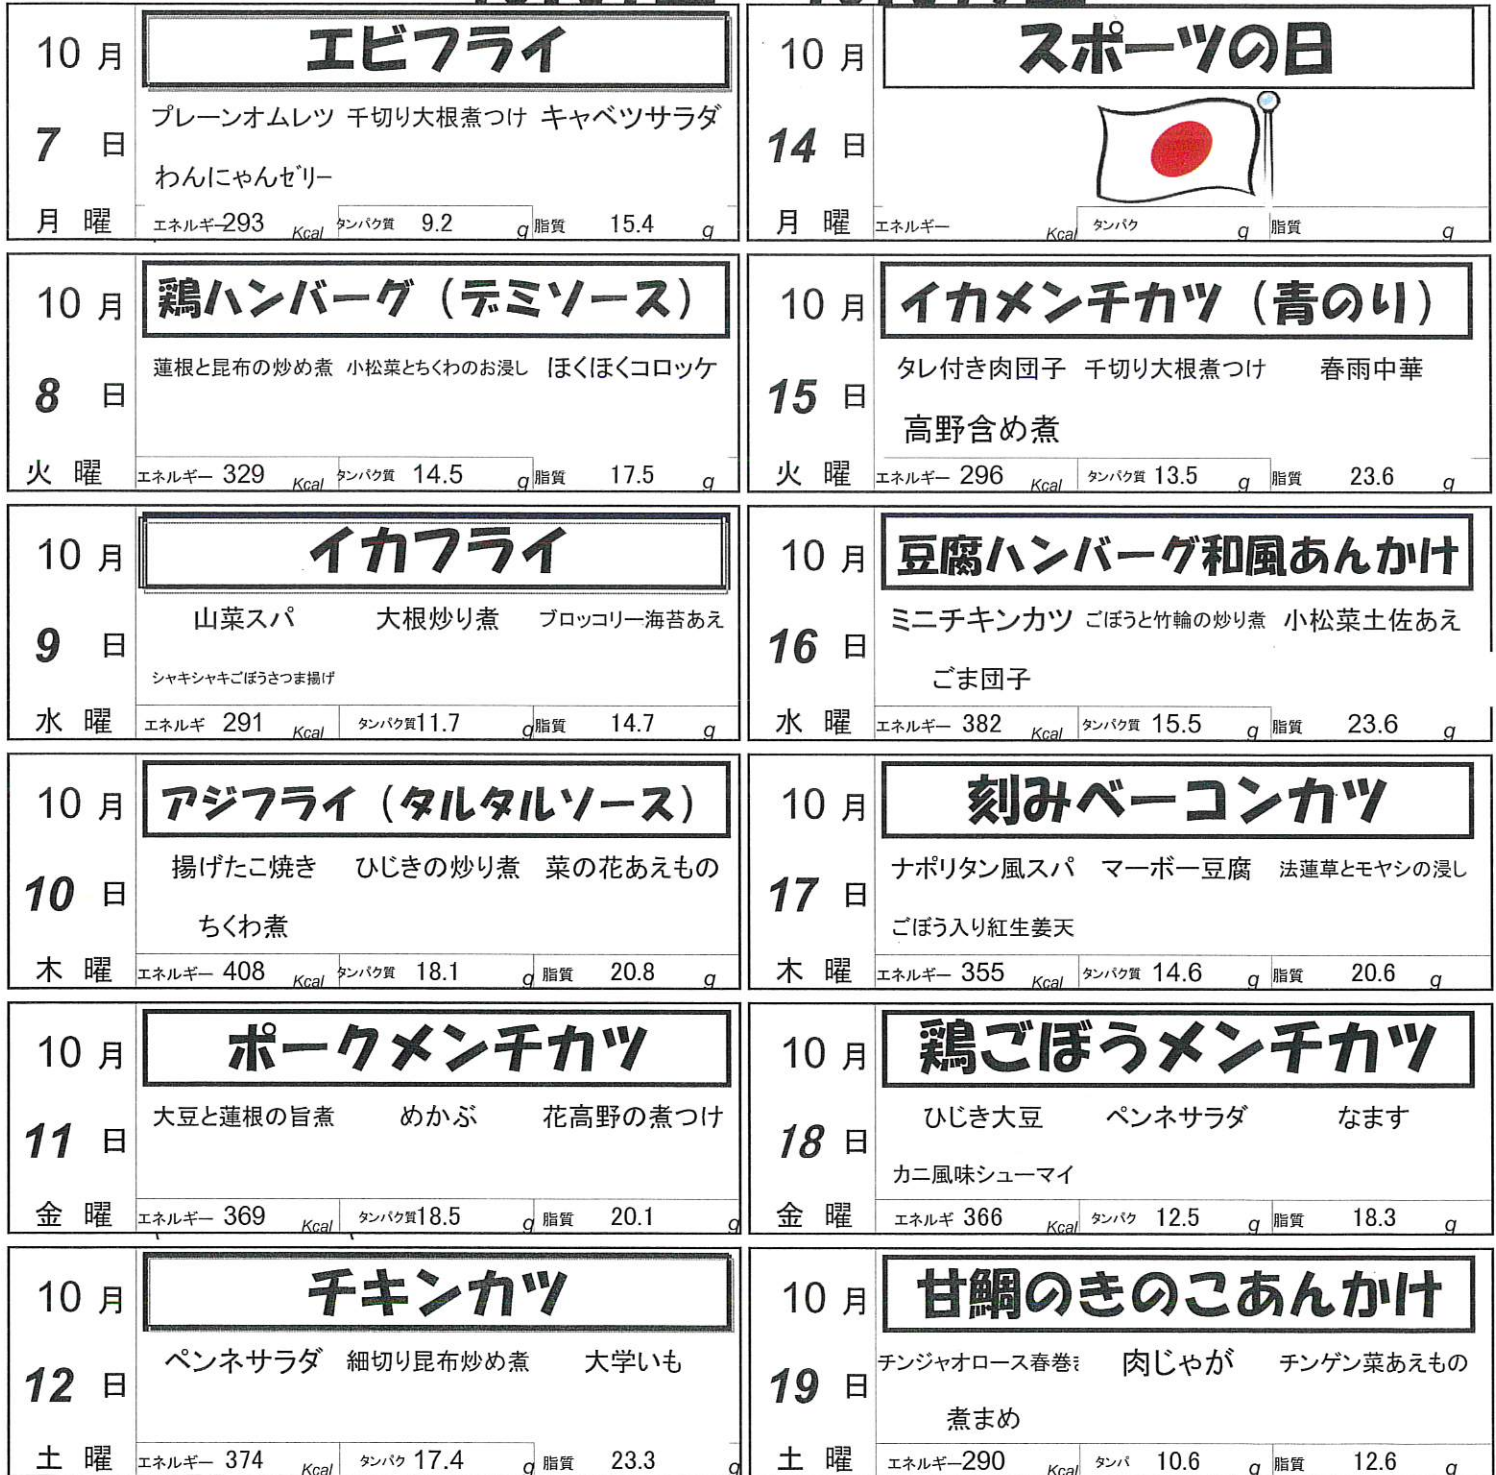 10 月
エビフライ
プレーンオムレツ 千切り大根煮つけ キャベツサラダ
7 日
わんにゃんゼリー
月 曜
エネルギー 293 Kcal タンパク質 9.2 g 脂質 15.4 g
10 月
鶏ハンバーグ（デミソース）
蓮根と昆布の炒め煮 小松菜とちくわのお浸し ほくほくコロッケ
8 日
火 曜
エネルギー 329 Kcal タンパク質 14.5 g 脂質 17.5 g
10 月
イカフライ
山菜スパ 大根炒り煮 ブロッコリー海苔あえ
9 日
シャキシャキごぼうさつま揚げ
水 曜
エネルギ 291 Kcal タンパク質 11.7 g 脂質 14.7 g
10 月
アジフライ（タルタルソース）
揚げたこ焼き ひじきの炒り煮 菜の花あえもの
10 日
ちくわ煮
木 曜
エネルギー 408 Kcal タンパク質 18.1 g 脂質 20.8 g
10 月
ポークメンチカツ
大豆と蓮根の旨煮 めかぶ 花高野の煮つけ
11 日
金 曜
エネルギー 369 Kcal タンパク質 18.5 g 脂質 20.1 g
10 月
チキンカツ
ペンネサラダ 細切り昆布炒め煮 大学いも
12 日
土 曜
エネルギー 374 Kcal タンパク 17.4 g 脂質 23.3 g
10 月
スポーツの日
14 日
月 曜
エネルギー Kcal タンパク g 脂質 g
10 月
イカメンチカツ（青のり）
タレ付き肉団子 千切り大根煮つけ 春雨中華
15 日
高野含め煮
火 曜
エネルギー 296 Kcal タンパク質 13.5 g 脂質 23.6 g
10 月
豆腐ハンバーグ和風あんかけ
ミニチキンカツ ごぼうと竹輪の炒り煮 小松菜土佐あえ
16 日
ごま団子
水 曜
エネルギー 382 Kcal タンパク質 15.5 g 脂質 23.6 g
10 月
刻みベーコンカツ
ナポリタン風スパ マーボー豆腐 法蓮草とモヤシの浸し
17 日
ごぼう入り紅生姜天
木 曜
エネルギー 355 Kcal タンパク質 14.6 g 脂質 20.6 g
10 月
鶏ごぼうメンチカツ
ひじき大豆 ペンネサラダ なます
18 日
カニ風味シューマイ
金 曜
エネルギ 366 Kcal タンパク 12.5 g 脂質 18.3 g
10 月
甘鯛のきのこあんかけ
チンジャオロース春巻き 肉じゃが チンゲン菜あえもの
19 日
煮まめ
土 曜
エネルギー 290 Kcal タンパ 10.6 g 脂質 12.6 g